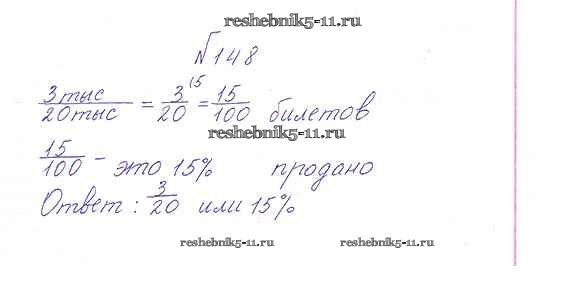 reshebnik5-11.ru
№148
3тыс/20тыс = 3/20 (5 = 15/100 билетов
reshebnik5-11.ru
15/100 - это 15% продано
Ответ: 3/20 или 15%
reshebnik5-11.ru reshebnik5-11.ru